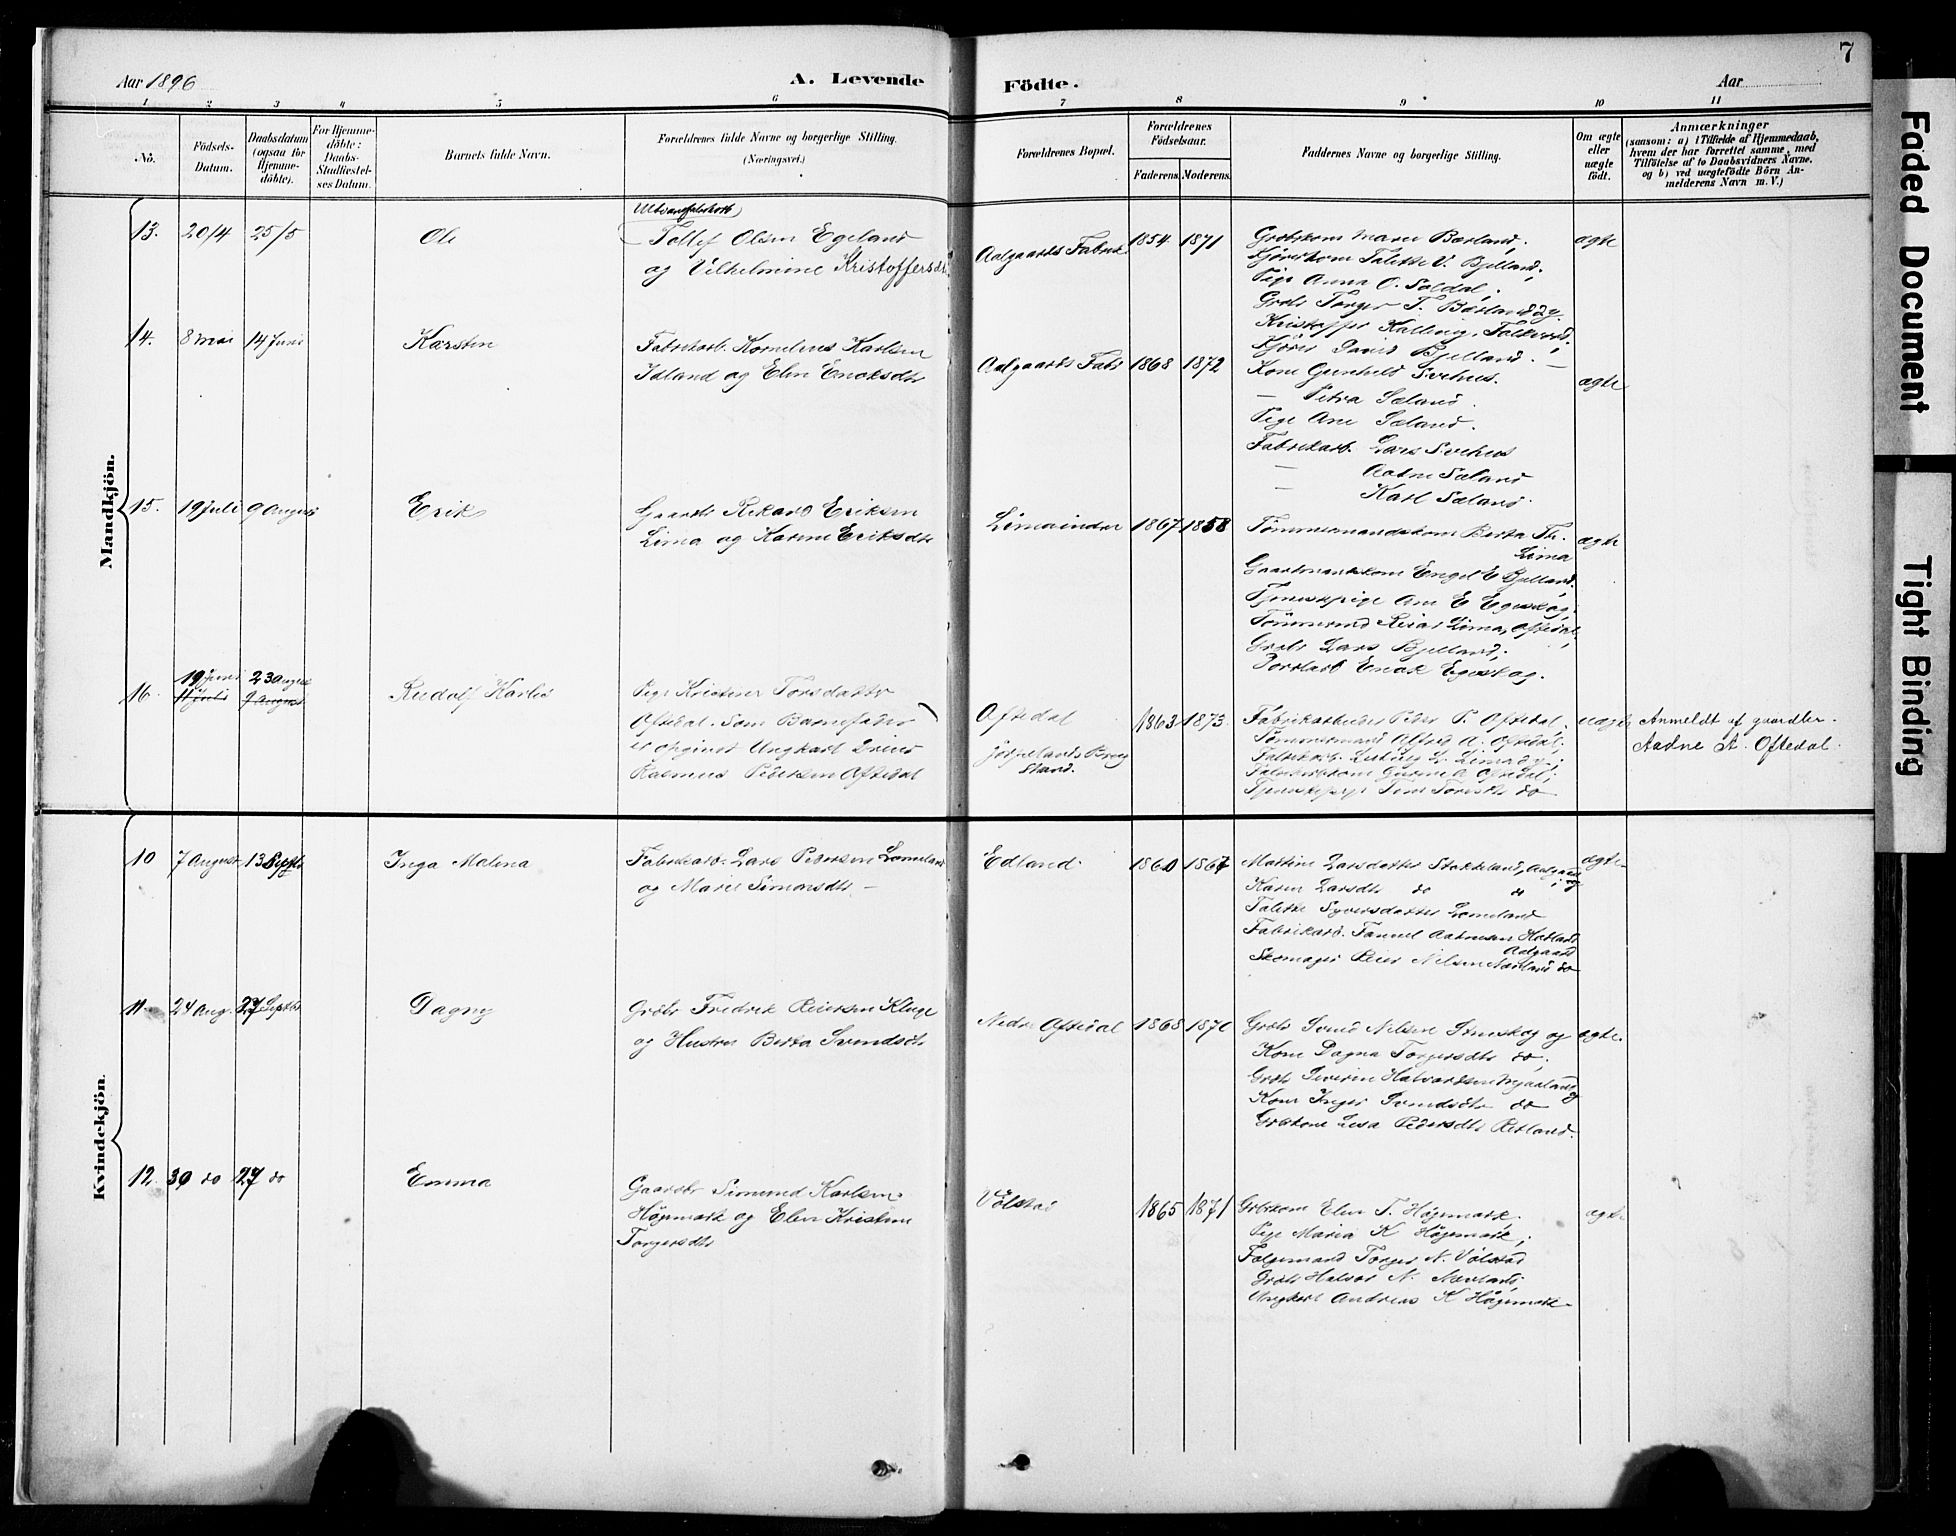 Aar 1896
A. Levende
Födte.
Aar
7
1 2 3 4 5 6 7 8 9 10 11
No.
Födsels-
Datum.
Daabsdatum
(ogsaa for
Hjemme-
döbte).
For Hjemme-
döbte:
Daabs-
Stadfæstel-
ses Datum.
Barnets fulde Navn.
Forældrenes fulde Navne og borgerlige Stilling.
(Næringsvei.)
Forældrenes Bopæl.
Forældrenes
Födselsaar.
Faderens. Moderens.
Faddernes Navne og borgerlige Stilling.
Om ægte
eller
uægte
födt.
Anmærkninger
(saasom: a) i Tilfælde af Hjemmedaab,
hvem der har forrettet samme, med
Tilföielse af to Daabsvidners Navne.
og b) ved uægtefödte Börn An-
melderens Navn m. V.)
Mandkjön.
13. 20/4 25/5
Ole
Tollef Olsen Egeland
og Vilhelmine Kristoffersdt.
Aalgaards Fabrik
1854 1871
Grbrkone Maren Bærland,
Talette V. Bjelland,
Pige Anna O. Soldal,
Grbr Torger T. Bærland og
Kristoffer Kallevig,
David Bjelland.
ægte
14. 8 Mai 14 Juni
Karsten
Fabrikarb. Kornelius Karlsen
Idland og Elen Enoksdtr
Aalgaards Fabr
1868 1872
Kone Gunhild Svehus.
— Petra Sæland.
Pige Ane Sæland.
Fabrikarb. Lars Svehus
— Aadne Sæland
— Karl Sæland.
ægte
15. 19 Juli 9 August
Erik
Gaardbr Rikard Eriksen
Lima og Karine Eriksdtr
Limaindre
1867 1858
Tømmermandskone Berta Th.
Lima
Gaardmandskone Engel E Bjelland,
Tjenestepige Ane E Egeskog,
Tømmermd Reiar Lima, Oftedal,
Grbr Lars Bjelland,
Enok Egeskog.
ægte
16. 19 Juni 23 August
11 Juli 9 August
Rudolf Karlus
Pige Kristine Torsdatter
Oftedal. Som Barnefader
er opgivet Ungkarl
Rasmus Pedersen Oftedal
Oftedal
Jørpelands Brug
Strand.
1863 1873.
Fabrikarbeider Peder P. Oftedal,
Tømmermand Alfred A. Oftedal,
Fabrikarb. Ludvig L. Lima og
Oftedal,
Tjenestepige do
uægte
Anmeldt af gaardbr.
Aadne A. Oftedal.
Kvindekjön.
10 7 August 13 Septbr
Inga Malena
Fabrikarb. Lars Pedersen Lomeland
og Maren Simonsdtr —
Edland.
1860 1867
Martine Larsdatter Stokkeland, Aalgaard,
Karen Larsdtr do " og
Talette Syversdatter Lomeland
Fabrikarb. Tønnes Aadnesen Hatland
Aalgaard
Skomager Peder Nilsen do
ægte
11. 24 Aug. 27 Septbr
Dagny
Grbr Fredrik Reiersen Kluge
og Hustru Berta Svendsdtr
Nedre Oftedal
1868 1870
Grbr Svend Nilsen og
Kone Dagna Torgersdtr do,
Grbr Severin Halvardsen og
Kone Inger Svendsdtr do
Grbrkone Lisa Pedersdtr Retland.
ægte.
12. 30 do 27 do
Emma
Gaardbr Simond Karlsen
Högemark og Elen Kristine
Torgersdtr
Vølstad
1865 1871
Grbrkone Elen T. Högemark,
Pige Maria K Högemark,
Følgemand Torger N. Vølstad
Grbr Halvor N. Nevland,
Ungkarl Andreas K Högemark.
ægte
Faded Document
Tight Binding